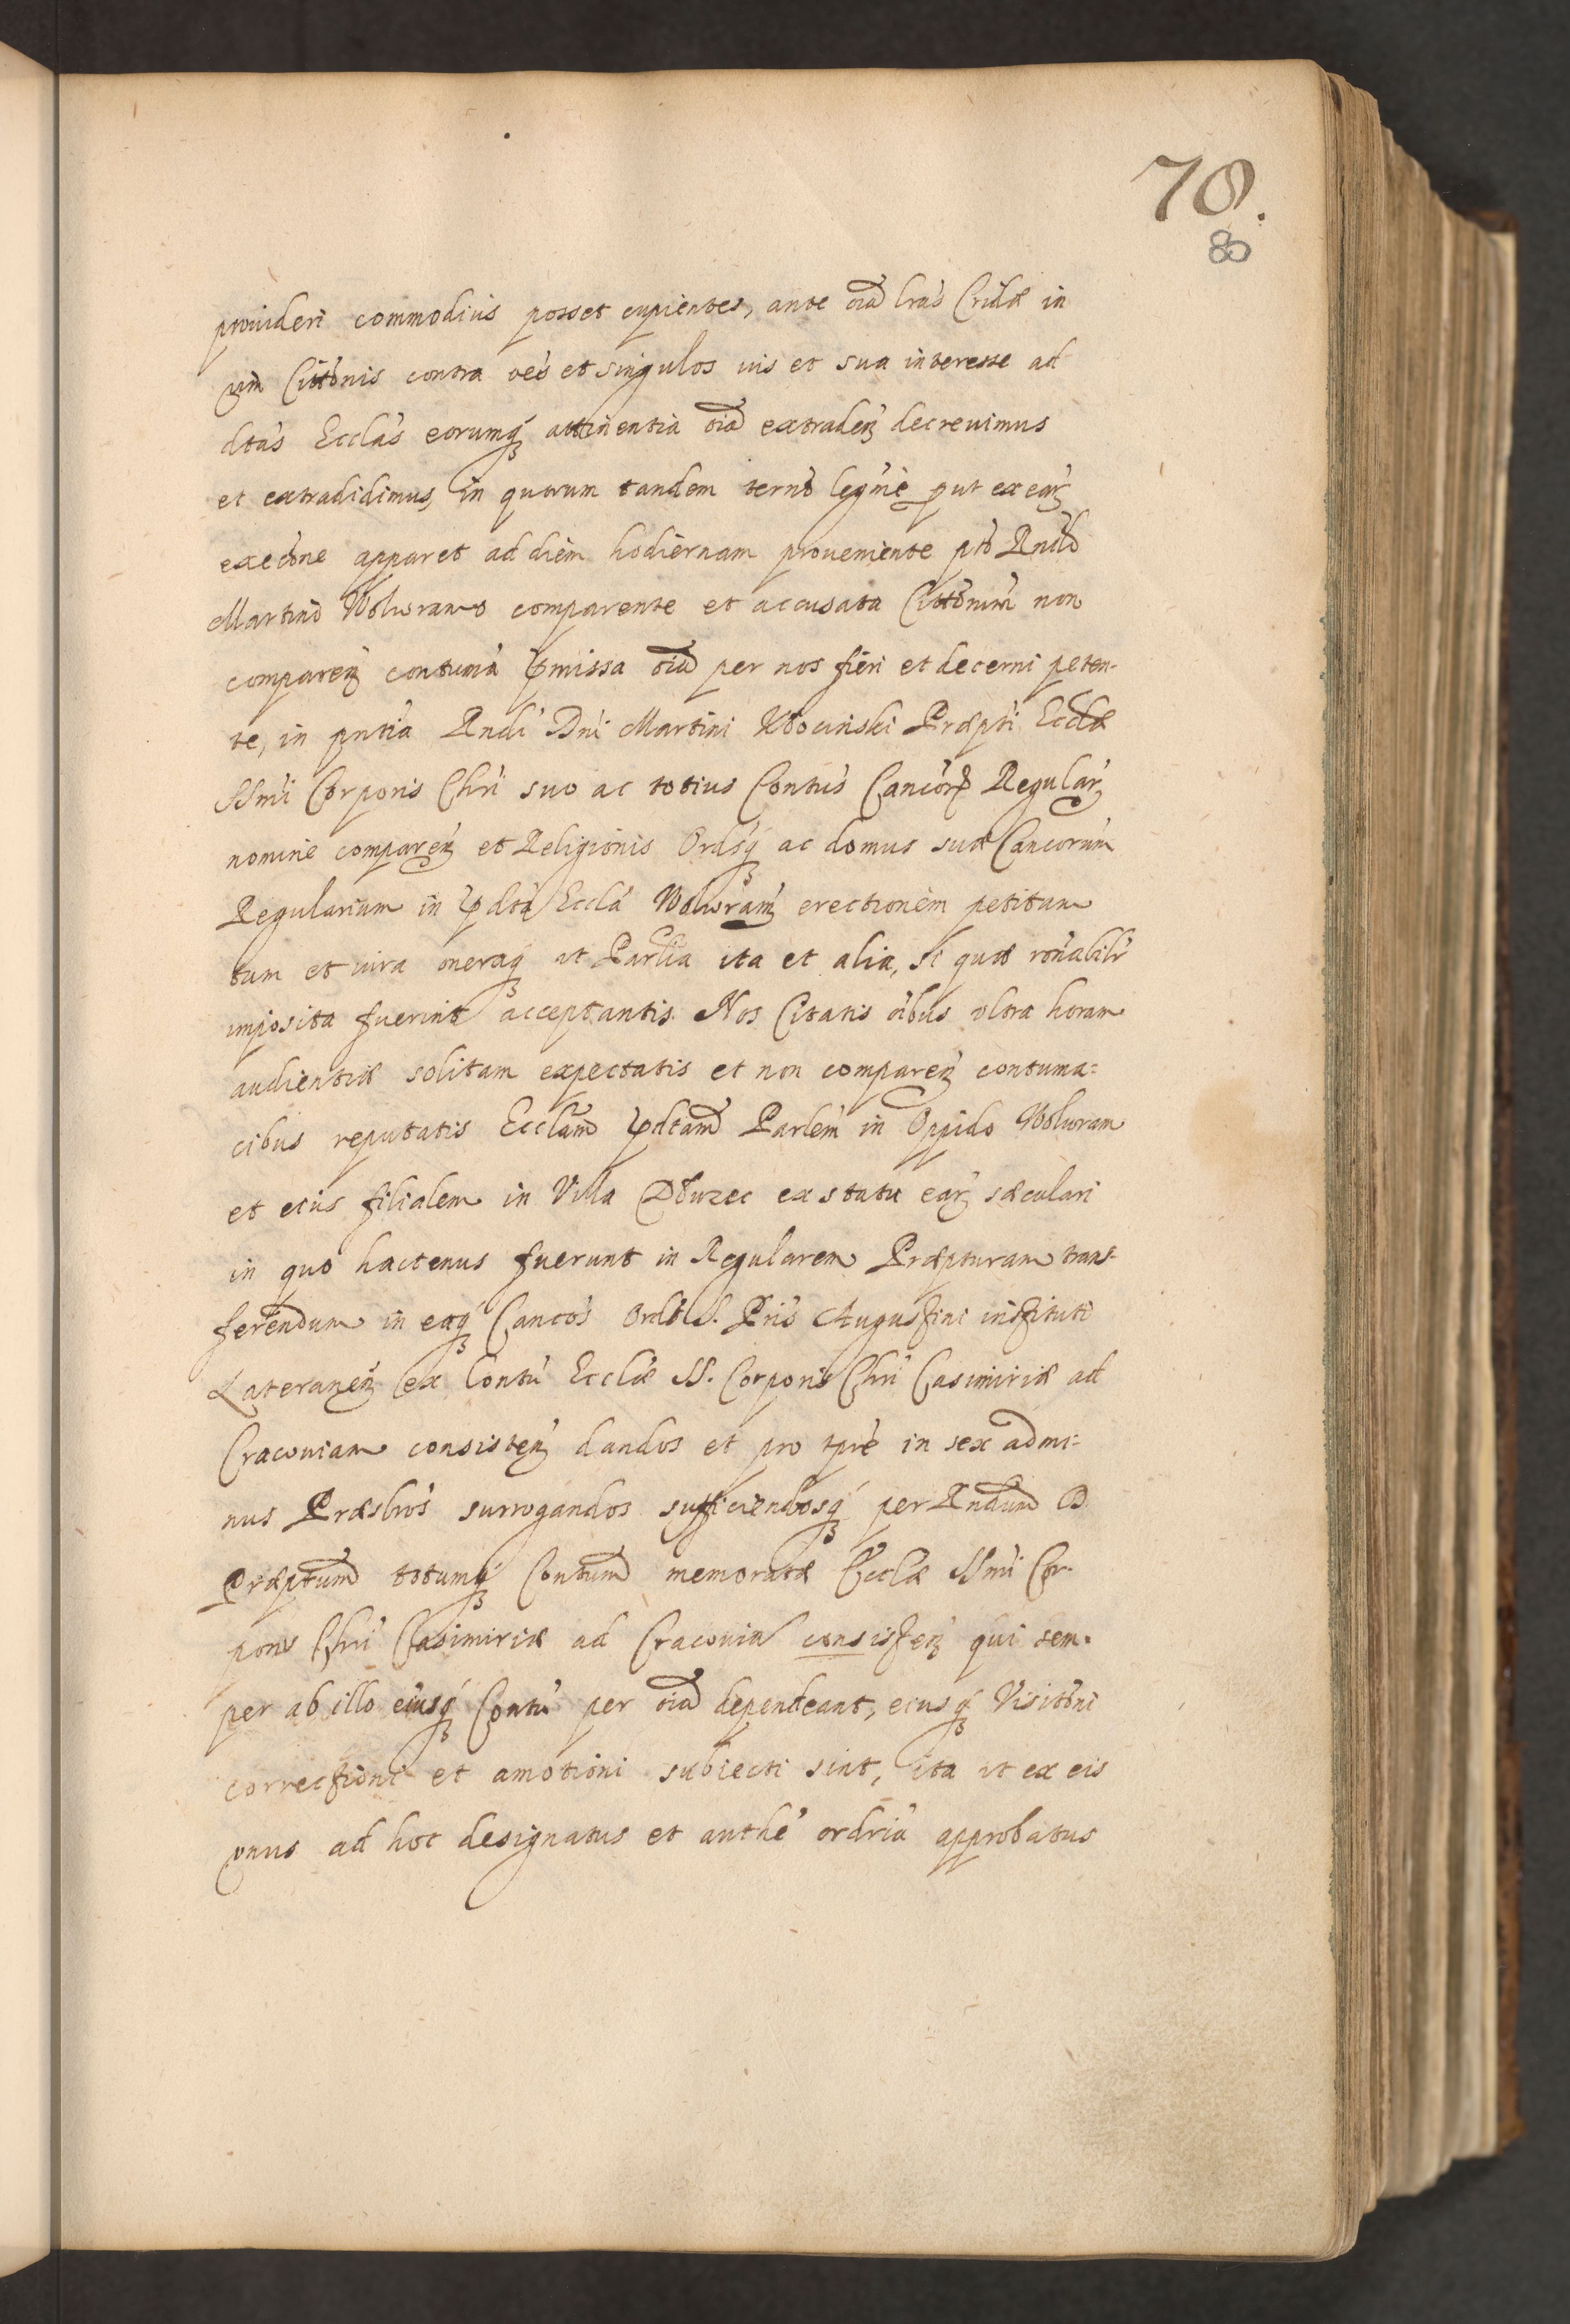 78.
80
prouideri commodius posset cupientes, ante oia lras Cridae in
vim Cittonis contra oes et singulos uis et sua interesse ad
dtas Ecclas eorumq attinentia oia extraden decreuimus
et extradidimus, in quorum tandem terno legme put ex ear
execone apparet ad diem hodiernam proueniente pto Rndo
Martino Wolwramo comparente et accusata Cittonum non
comparen contuma pmissa oia per nos fieri et decerni peten-
te, in pntia Rndi Dni Martini Kłocinski Praepti Ecclae
SSmi Corporis Chri suo ac totius Contus Cancor Regular
nomine comparen et Religionis Ordsq ac domus suae Cancorum
Regularium in pdta Eccla Wolwram erectionem petitam
tam et iura oneraq ut Parlia ita et alia, si quae ronabilr
imposita fuerint acceptantis. Nos Citatis oibus vltra horam
audientiae solitam expectatis et non comparen contuma=
cibus reputatis Ecclam pdtam Parlem in Oppido Wolwram
et eius filialem in Villa Dłuzec ex statu ear saeculari
in quo hactenus fuerunt in Regularem Praepturam trans-
ferendum in eaq Cancos Ordis S. Pris Augustini instituti
Lateranen ex Contu Ecclae SS. Corporis Chri Casimiriae ad
Cracouiam consisten dandos et pro tpre in sex admi=
nus Praesbros surrogandos sufficiendosq per Rndum D.
Praeptum totumq Contum memoratae Ecclae SSmi Cor-
poris Chri Casimiriae ad Cracouia consisten qui sem-
per ab illo eiusq Contu per oia dependeant, eiusq Visitoni
correctioni et amotioni subiecti sint, ita ut ex eis
vnus ad hoc designatus et authe ordria approbatus